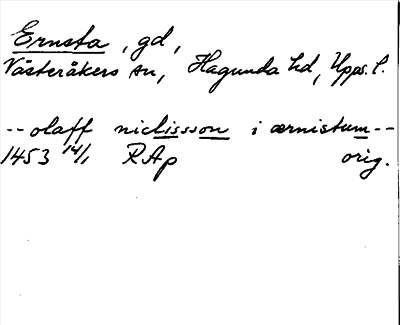 Ernsta, gd,
Västeråkers sn, Hagunda hd, Upps. l.
-- olaff niclissson i ærnistum --
1453 14/1 RAp orig.